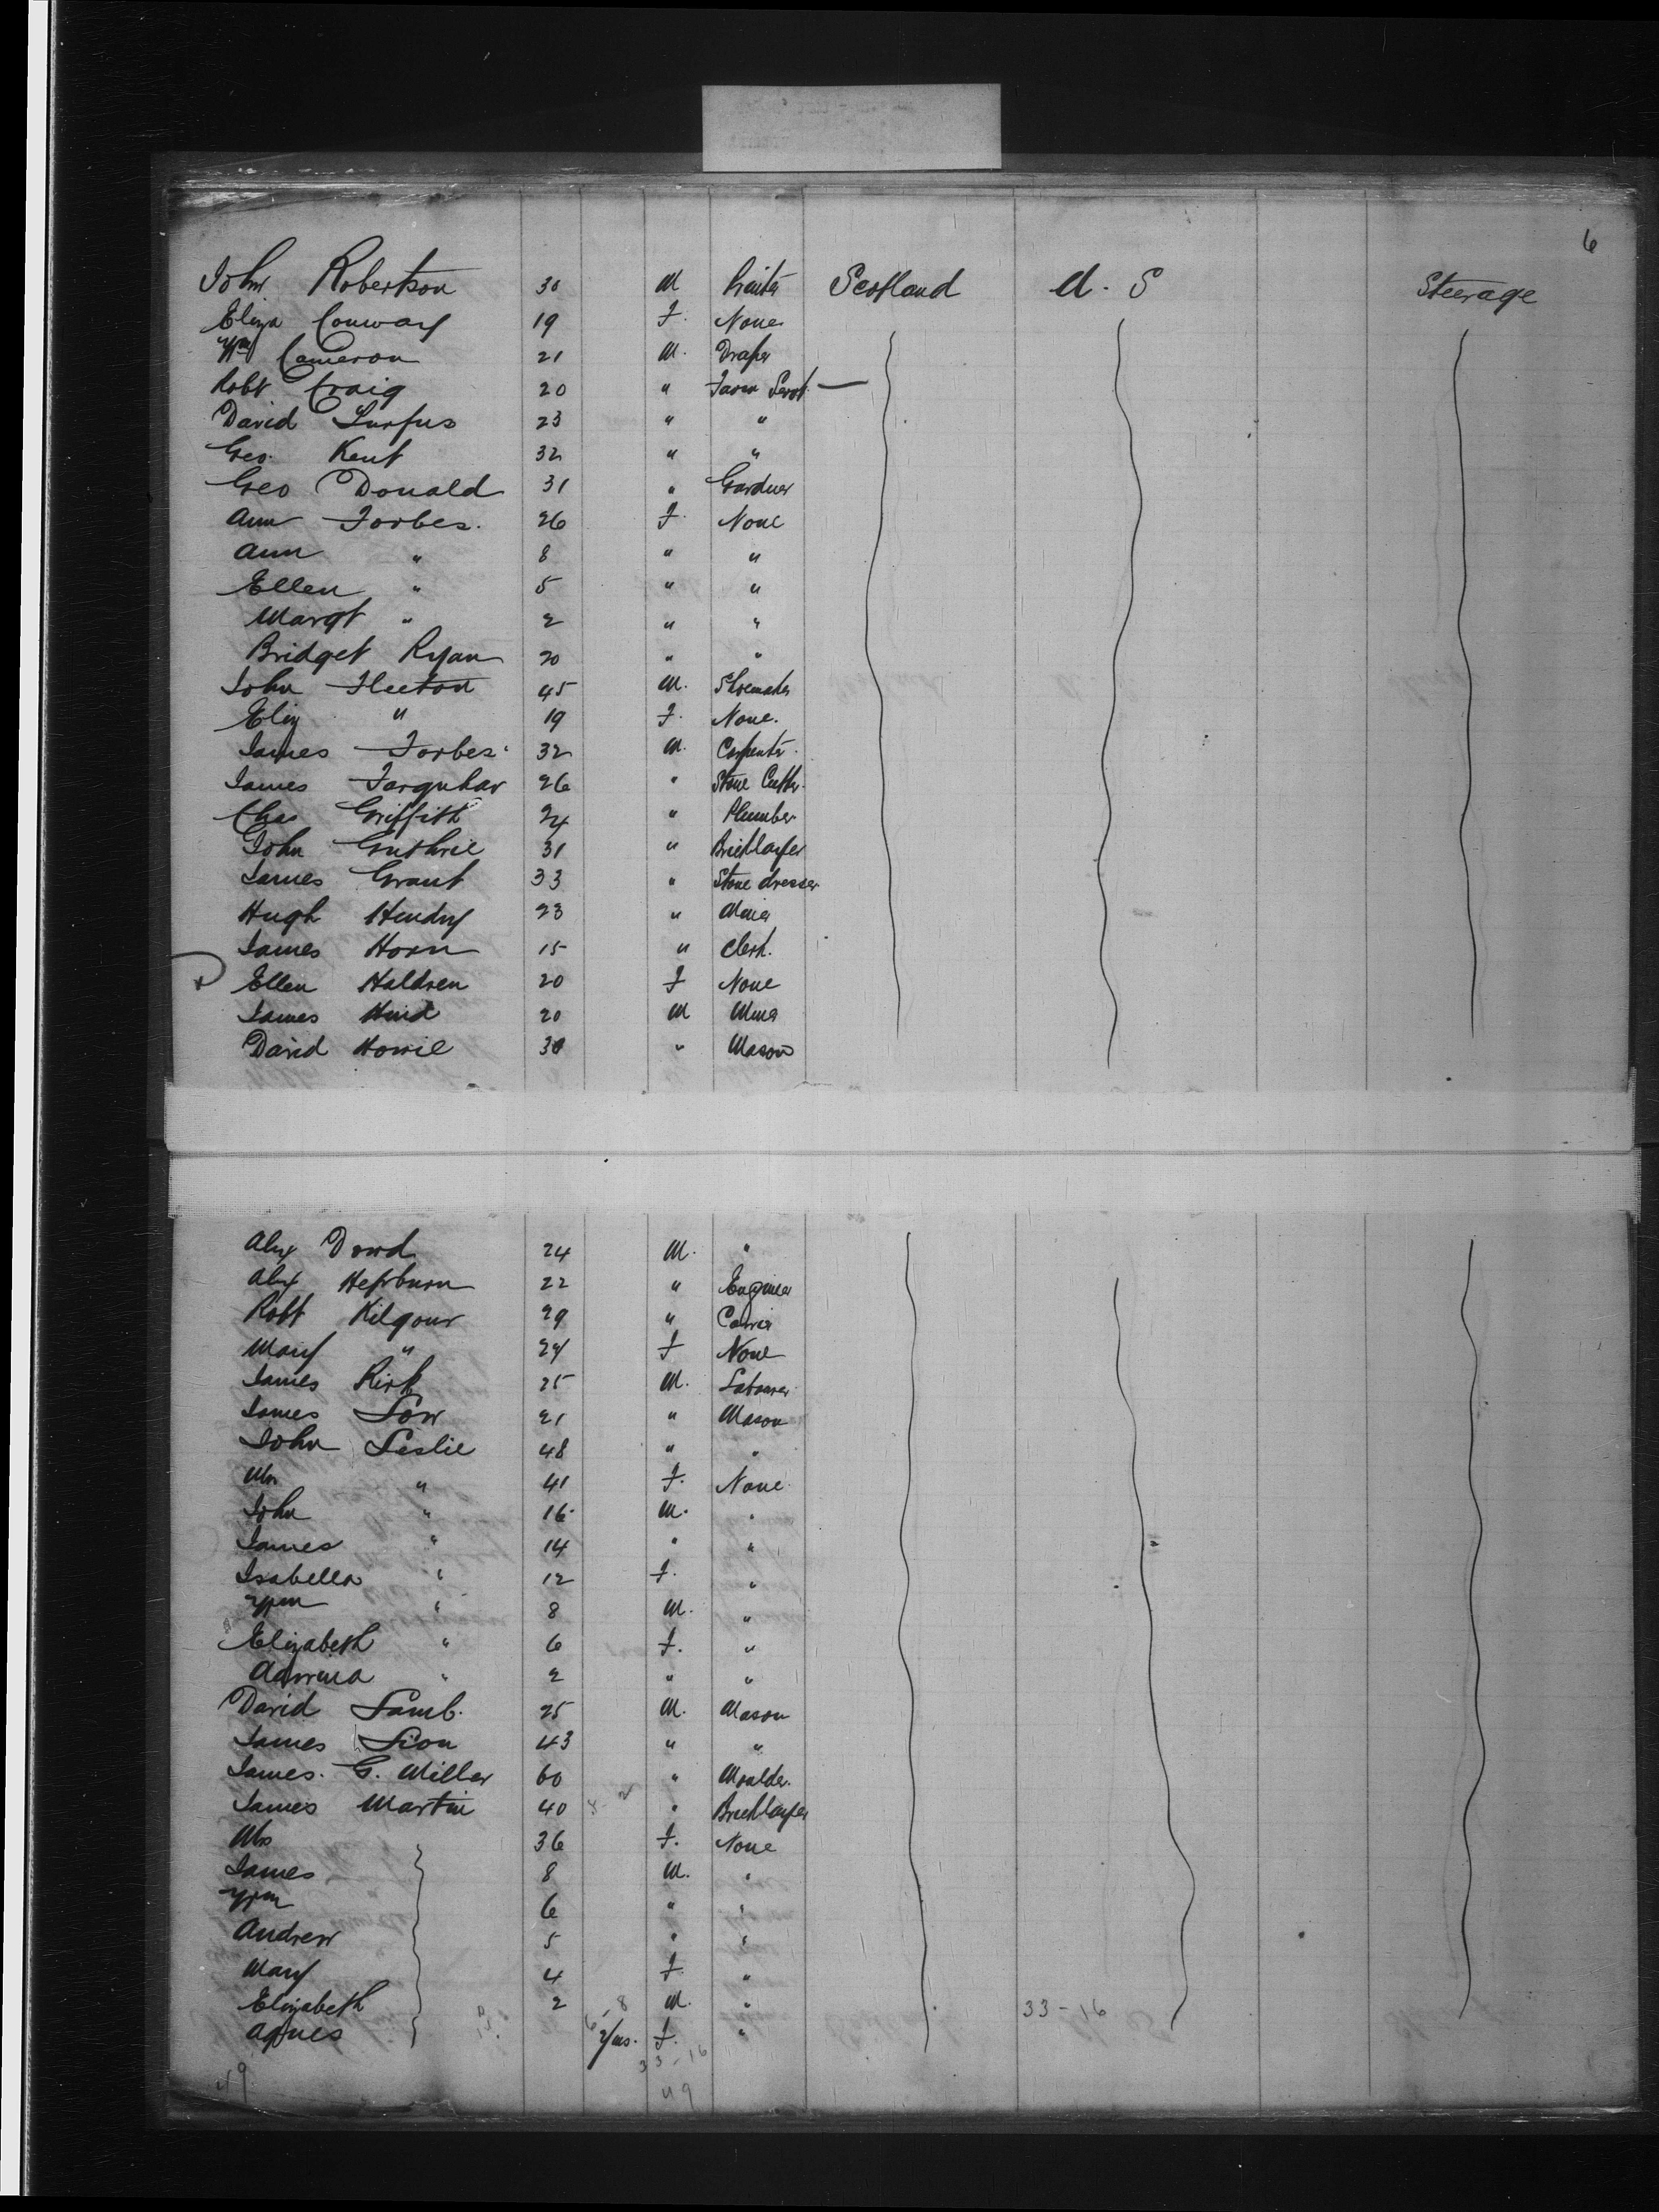 6
John Robertson 30 M Painter Scotland U. S Steerage
Eliza Conway 19 F. None
Wm Cameron 21 M. Draper
Robt Craig 20 " Farm Servt. —
David 23 " "
Geo. Kent 32 " "
Geo Donald 31 " Gardner
Ann Forbes. 26 F. None
Ann " 8 " "
Ellen " 5 " "
Margt " 2 " "
Bridget Ryan 20 " "
John Fleeton 45 M. Shoemaker
Eliz " 19 F. None.
James Forbes 32 M. Carpenter.
James Farquhar 26 " Stone Cutter.
Chas Griffith 24 " Plumber
John Guthrie 31 " Bricklayer
James Grant 33 " Stone dresser
Hugh Hendry 23 " Miner
James Horn 15 " Clerk.
Ellen Haldren 20 F None
James Hind 20 M Miner
David Howie 30 " Mason
Alex Dowd 24 M. "
Alex Hepburn 22 " Engineer
Robt Kilgour 29 "
Mary " 24 F None
James Kirk 25 M. Labourer
James Low 21 " Mason
John Leslie 48 " "
Mrs " 41 F. None
John " 16 M. "
James " 14 " "
Isabella " 12 F. "
Wm " 8 M. "
Elizabeth " 6 F. "
" 2 " "
David Lamb. 25 M. Mason
James Lion 43 " "
James. G. Miller 60 " Moulder.
James Martin 40 " Bricklayer
Mrs 36 F. None
James 8 M. "
Wm 6 " "
Andrew 5 " "
Mary 4 F. "
Elizabeth 2 M. " 33-16
Agnes F. "
33-16
49 49